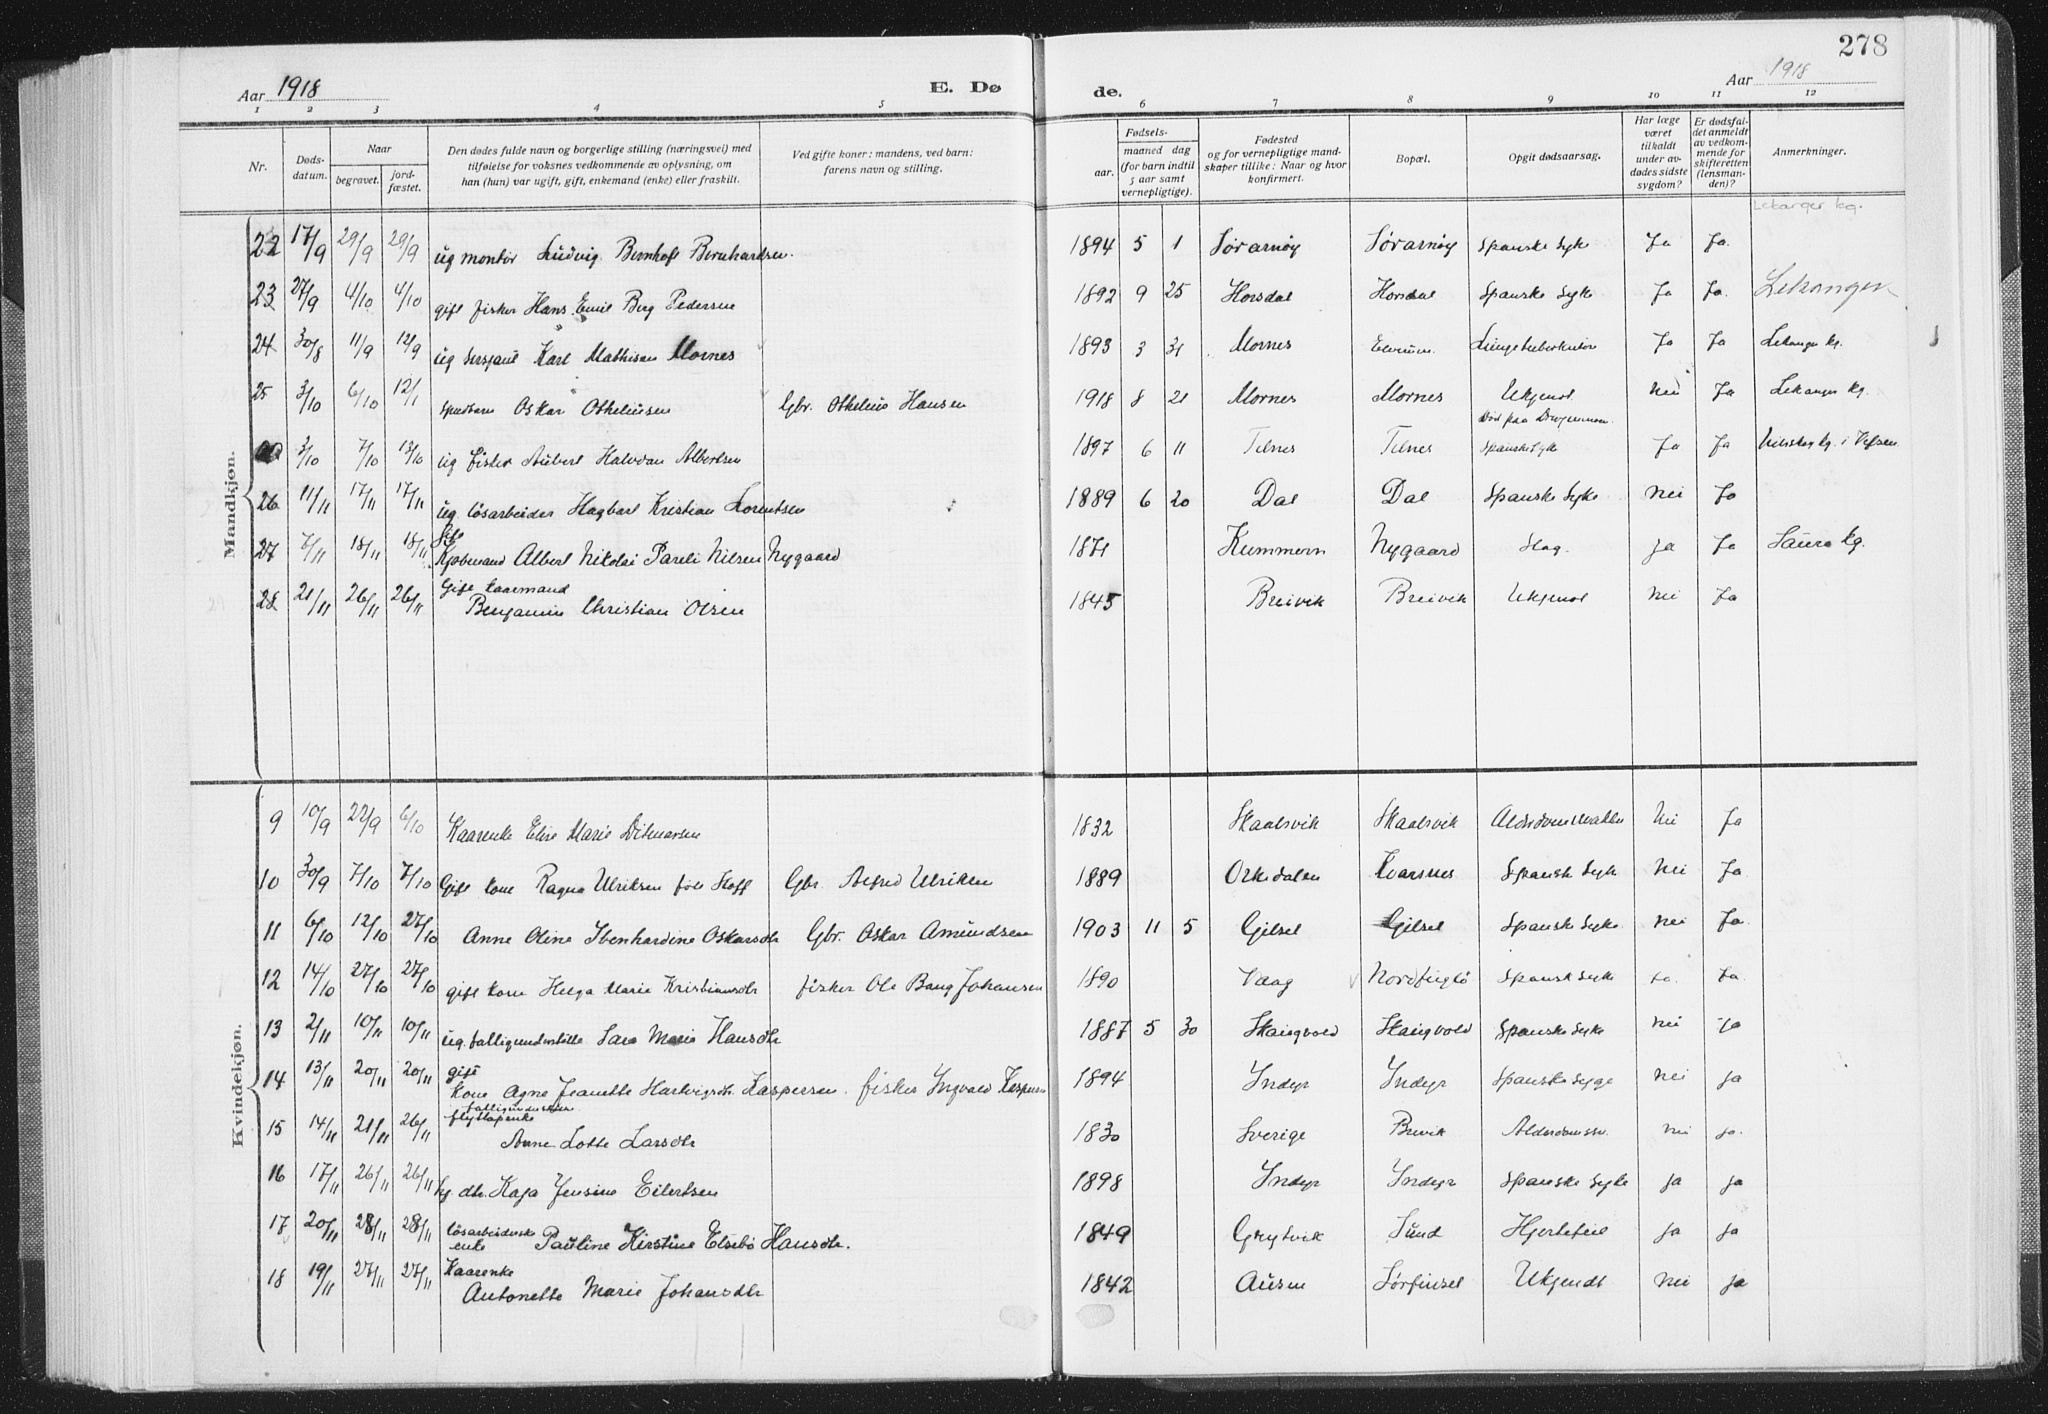 278
Aar 1918 E. Dø de. Aar 1918
1 2 3 4 5 6 7 8 9 10 11 12
Nr. Døds-datum. Naar begravet. jord-fæstet. Den dødes fulde navn og borgerlige stilling (næringsvei) med tilføielse for voksnes vedkommende av oplysning, om han (hun) var ugift, gift, enkemand (enke) eller fraskilt. Ved gifte koner: mandens, ved barn: farens navn og stilling. Fødsels- aar. maaned dag (for barn indtil 5 aar samt vernepligtige). Fødested og for vernepligtige mand-skaper tillike: Naar og hvor konfirmert. Bopæl. Opgit dødsaarsag. Har læge været tilkaldt under av-dødes sidste sygdom? Er dødsfal-det anmeldt av vedkom-mende for skifteretten (lensman-den)? Anmerkninger.
Mandkjøn.
Lekanger kg.
22 17/9 29/9 29/9 ug montør Ludvig Bernhoft Bernhardsen. 1894 5 1 Sørarnøy Sørarnøy Spanske Syke Ja Ja.
23 27/9 4/10 4/10 gift fisker Hans Emil Berg Pedersen 1892 9 25 Horsdal Horsdal Spanske Syke Ja Ja. Lekanger
24 30/8 11/9 12/9 ug Sersjant Karl Mathisen Mornes 1893 3 31 Mornes Elverum. Lungetuberkulose Ja Ja Lekanger kg.
25 3/10 6/10 12/1 spædbarn Oskar Othelinsen Gbr. Othelius Hansen 1918 8 21 Mornes Mornes Ukjent Nei Ja Lekanger kg.
3/10 7/10 13/10 ug fisker Halvdan Albertsen 1897 6 11 Telnes Telnes Spanske Syke Ja Ja kg. i Vefsen
26 11/11 17/11 17/11 ug. løsarbeider Hagbart Kristian Lorentsen 1889 6 20 Dal Dal Spanske Syke Nei Ja
27 7/11 18/11 18/11 Gift Kjøbmand Albert Nikolai Pareli Nilsen Nygaard 1871 Kummern Nygaard Slag. ja Ja Saura kg.
28 21/11 26/11 26/11 Gift kaarmand Benjamin Christian Olsen 1845 Breivik Breivik Ukjent Nei Ja
Kvindekjøn.
9 10/9 22/9 6/10 Kaarenke Elise Marie Ditmarsen 1832 Skaalsvik Skaalsvik Nei Ja
10 30/9 7/10 7/10 Gift kone Ragna Ulriksen født Hoff Gbr. Alfred Ulriksen 1889 Orkedalen Kvarsnes Spansk Syke Nei Ja.
11 6/10 12/10 27/10 Anne Oline Ibenhardine Oskarsdtr Gbr. Oskar Amundsen 1903 11 5 Gilset Gilset Spanske Syke Nei Ja.
12 14/10 27/10 27/10 gift kone Helga Marie Kristiansdtr fisker Ole Bang Johansen 1890 Vaag Nordfuglø Spansk Syke Ja. Ja.
13 2/11 10/11 10/11 ug. fattigunderstøtte Sara Marie Hansdtr 1887 5 30 Skaugvold Skaugvold Spanske Syke Nei Ja
14 13/11 20/11 20/11 gift kone Agna Jeanette Hartvigsdtr. Kaspersen. fisker Ingvald Kaspersen 1894 Indyr Indyr Spanske Syge Nei ja
15 14/11 21/11 26/11 Anne Lotte Larsdtr 1830 Sverige Breivik Alderdomssv. Nei ja.
16 17/11 26/11 26/11 dtr. Kaja Jensine Eilertsen 1898 Indyr Indyr Spanske Syke ja ja
17 20/11 28/11 28/11 løsarbeiderske enke Pauline Kirstine Elsebø Hansdtr. 1849 Grytvik Sund Hjertefeil ja ja
18 19/11 27/11 27/11 Kaarenke Antonette Marie Johansdtr 1842 Ausen Sørfinset Ukjendt Nei ja